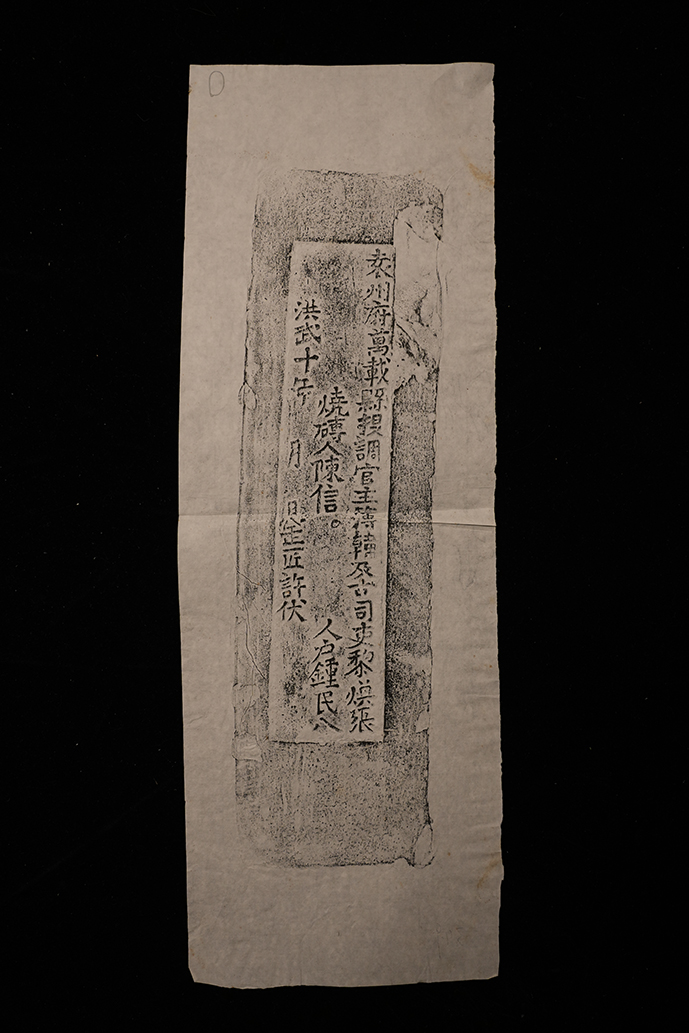 袁州府萬載縣提調官主簿韓及古司吏黎煥張
燒磚人陳信。 人戶鍾民八
洪武十年 月 日 匠許伏